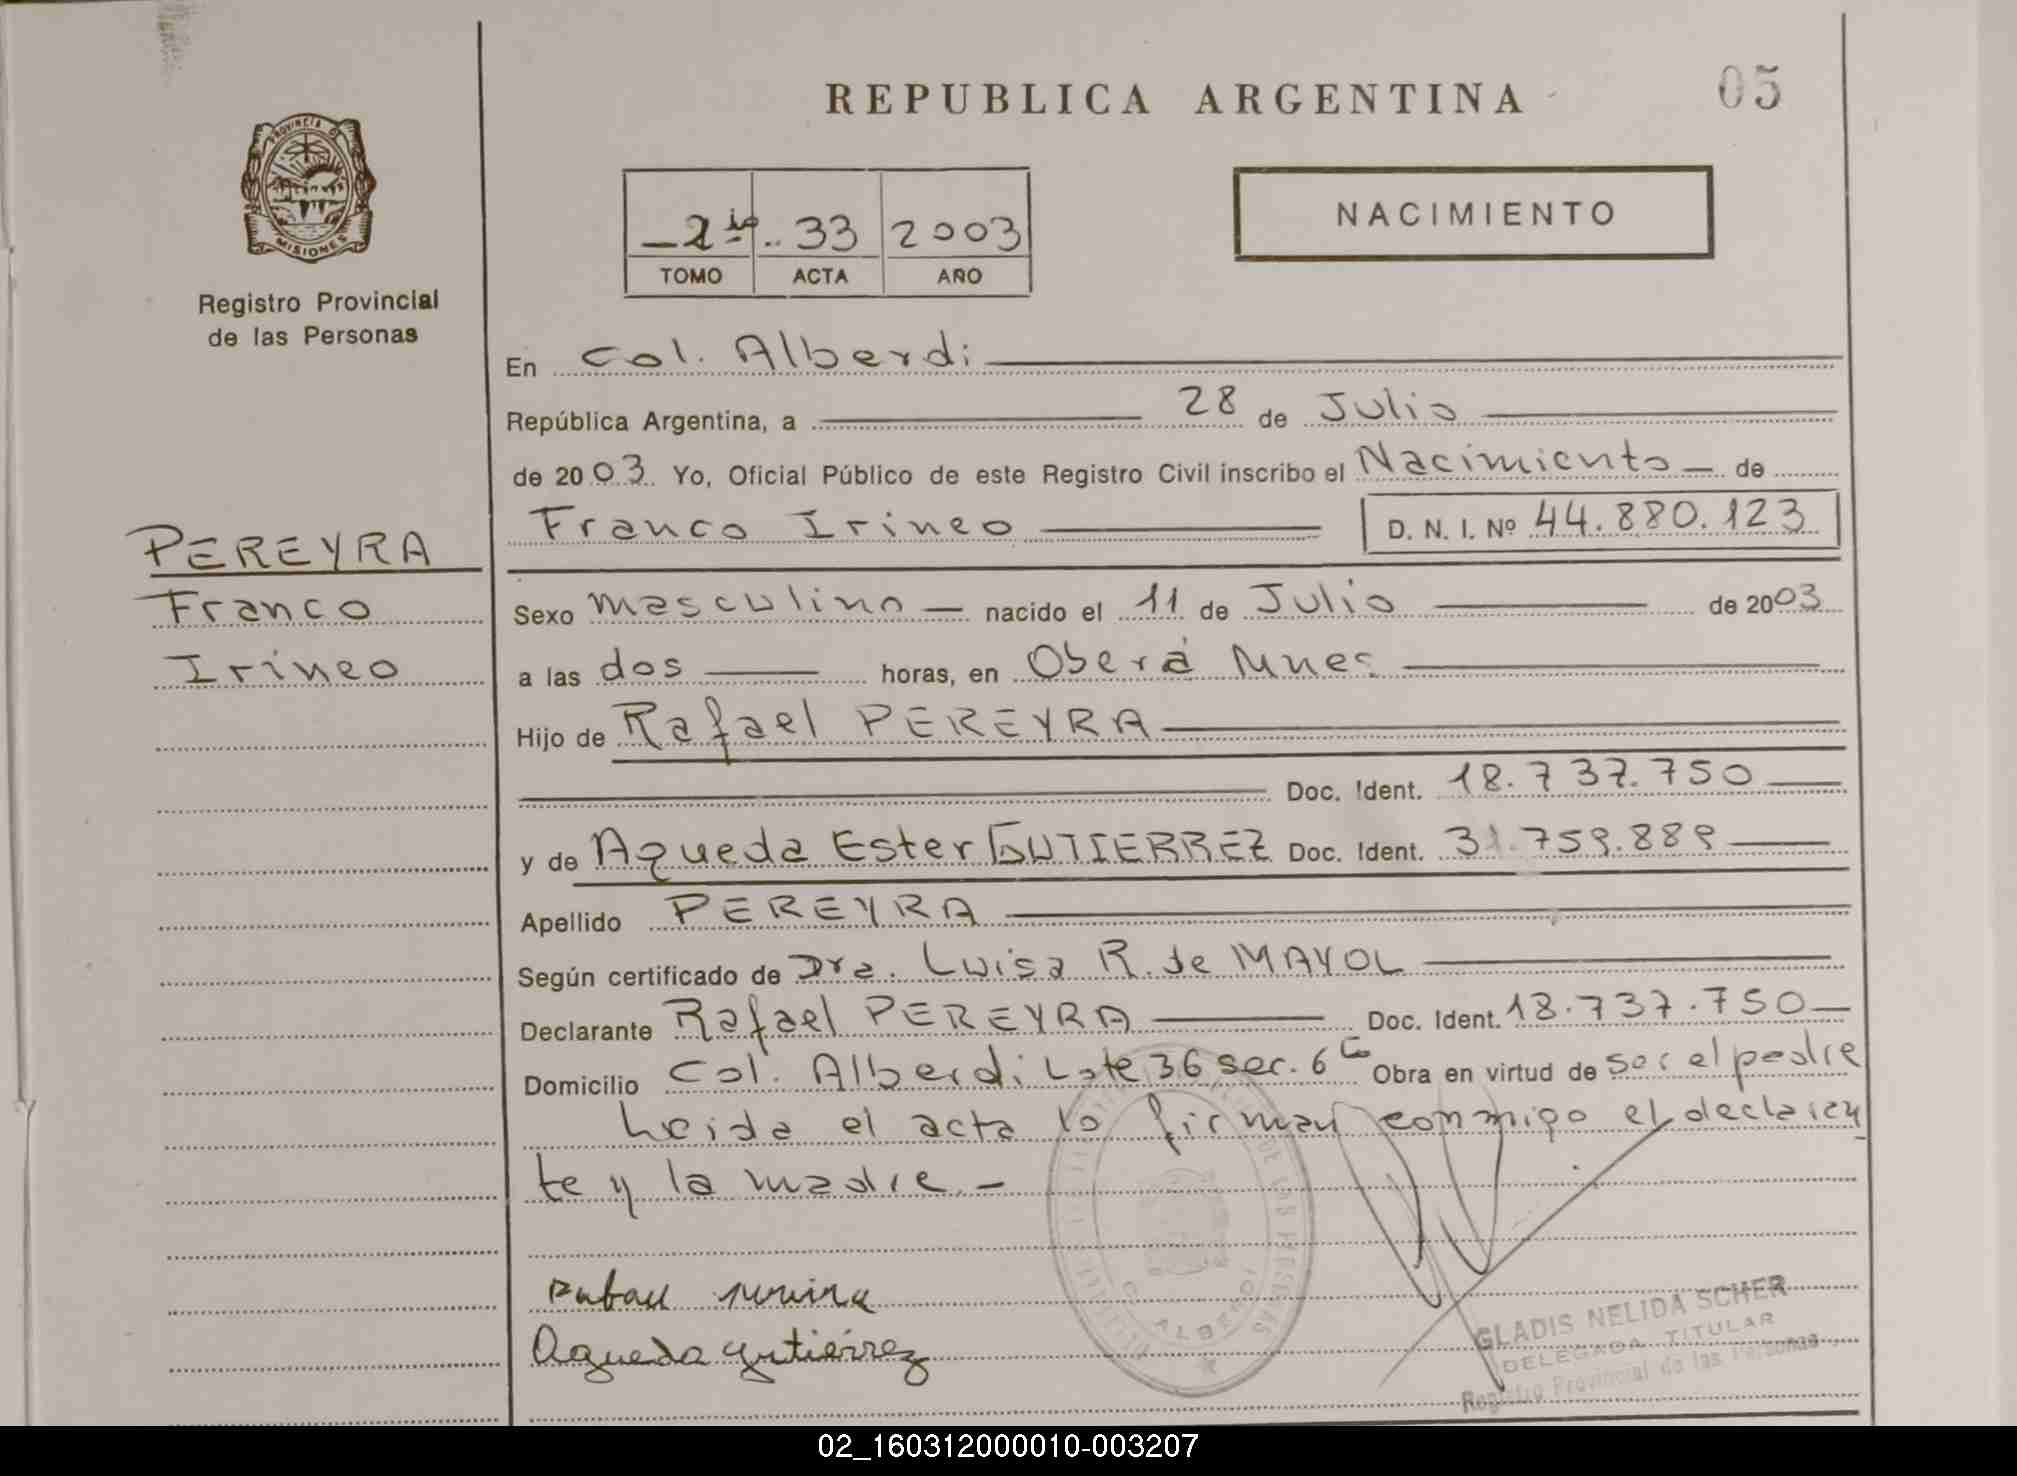 REPUBLICA ARGENTINA
05
PROVINCIA DE
MISIONES
Registro Provincial
de las Personas
2 33 2003
TOMO ACTA AÑO
NACIMIENTO
En Col. Alberdi
República Argentina, a 28 de Julio
de 2003. Yo, Oficial Público de este Registro Civil inscribo el Nacimiento de
Franco Irineo D. N. I. Nº 44.880.123
PEREYRA
Franco
Irineo
Sexo masculino nacido el 11 de Julio de 2003
a las dos horas, en Oberá Mnes
Hijo de Rafael PEREYRA
Doc. Ident. 18.737.750
y de Agueda Ester GUTIERREZ Doc. Ident. 31.759.889
Apellido PEREYRA
Según certificado de Dra. Luisa R. de MAYOL
Declarante Rafael PEREYRA Doc. Ident. 18.737.750
Domicilio Col. Alberdi Lote 36 sec. 6ta Obra en virtud de ser el padre
Leida el acta la firman conmigo el declaran
te y la madre.
Agueda gutiérrez
GLADIS NELIDA SCHER
DELEGADA TITULAR
Registro Provincial de las Personas
02_160312000010-003207